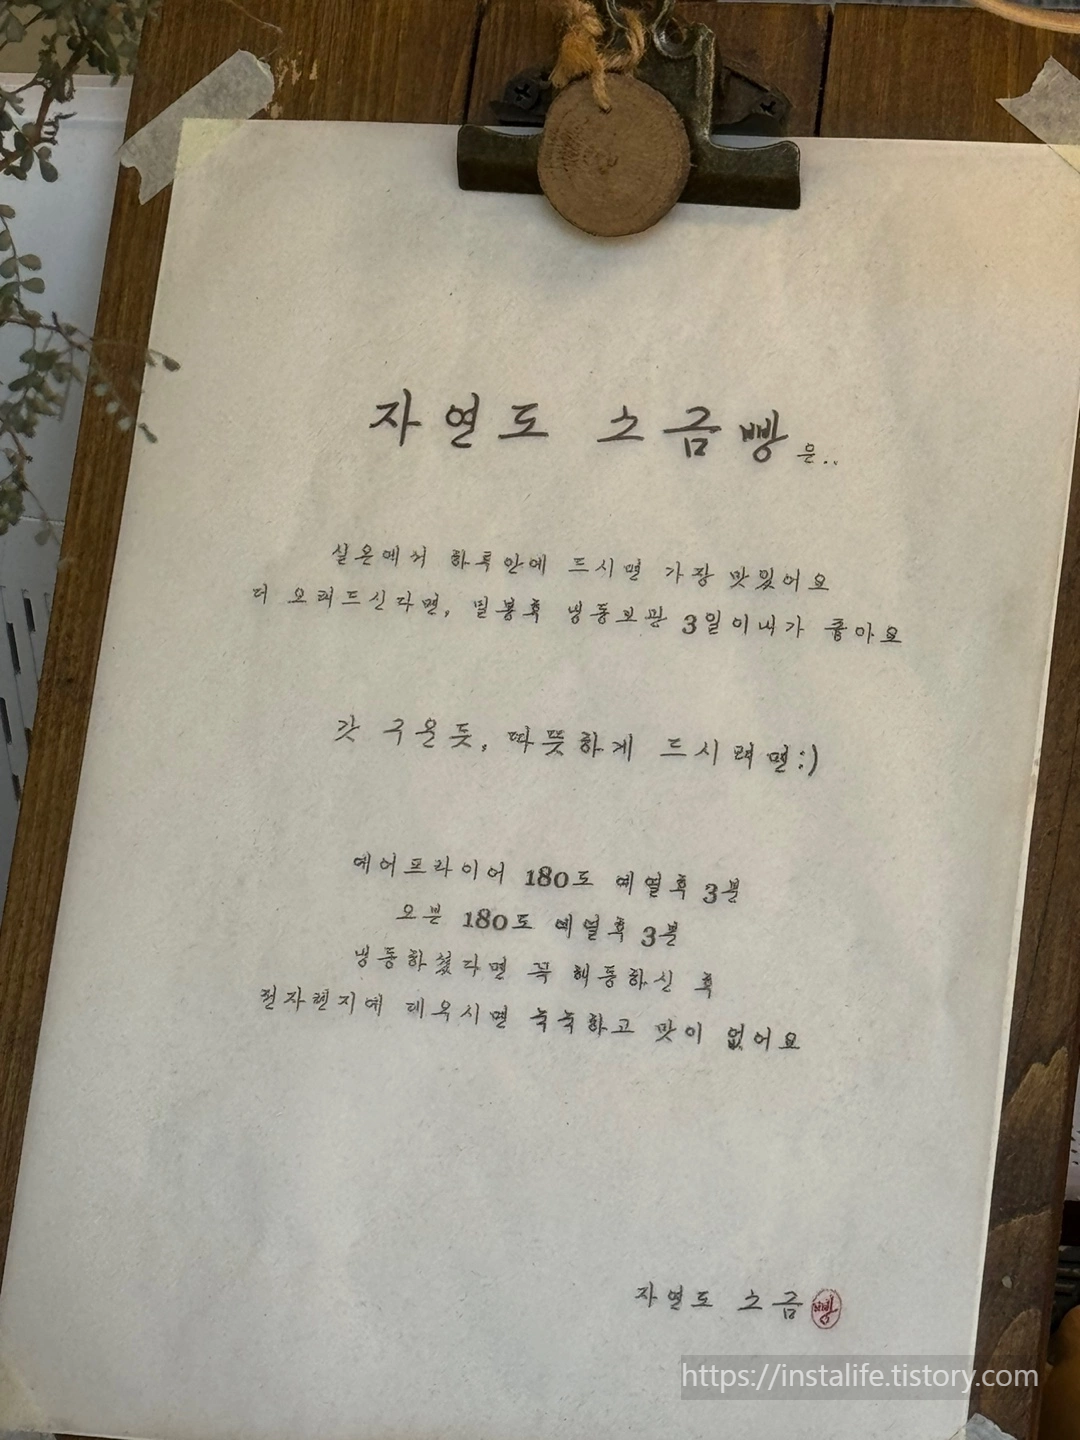 자연도 소금빵은..
실온에서 하루안에 드시면 가장 맛있어요
더 오래드신다면, 밀봉후 냉동보관 3일이내가 좋아요
갓 구운듯, 따뜻하게 드시려면:)
에어프라이어 180도 예열후 3분
오븐 180도 예열후 3분
냉동하셨다면 꼭 해동하신 후
전자렌지에 데우시면 눅눅하고 맛이 없어요
자연도 소금빵
https://instalife.tistory.com